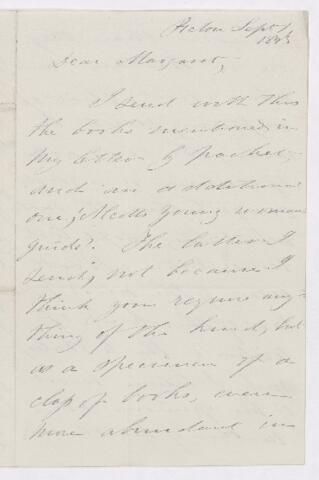 Picton Sept 1
184
Dear Margaret,
I send with this
the books mentioned in
my letter by packet,
and an additional
one, Alcotts Young woman's
guide. The latter I
send, not because I
think you require any-
thing of the kind, but
as a specimen of a
class of books, even
more abundant in